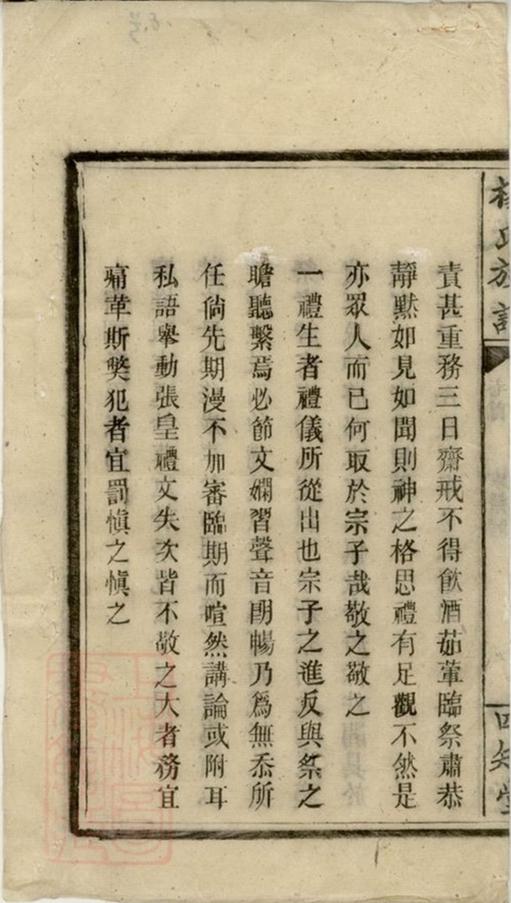 責甚重務三日齋戒不得飲酒茹葷臨祭肅恭
靜默如見如聞則神之格思禮有足觀不然是
亦眾人而已何取於宗子哉敬之敬之
一禮生者禮儀所從出也宗子之進反與祭之
瞻聽繫焉必節文嫻習聲音朗暢乃爲無忝所
任倘先期漫不加審臨期而喧然講論或附耳
私語舉動張皇禮文失次皆不敬之大者務宜
痛革斯獘犯者宜罰慎之慎之